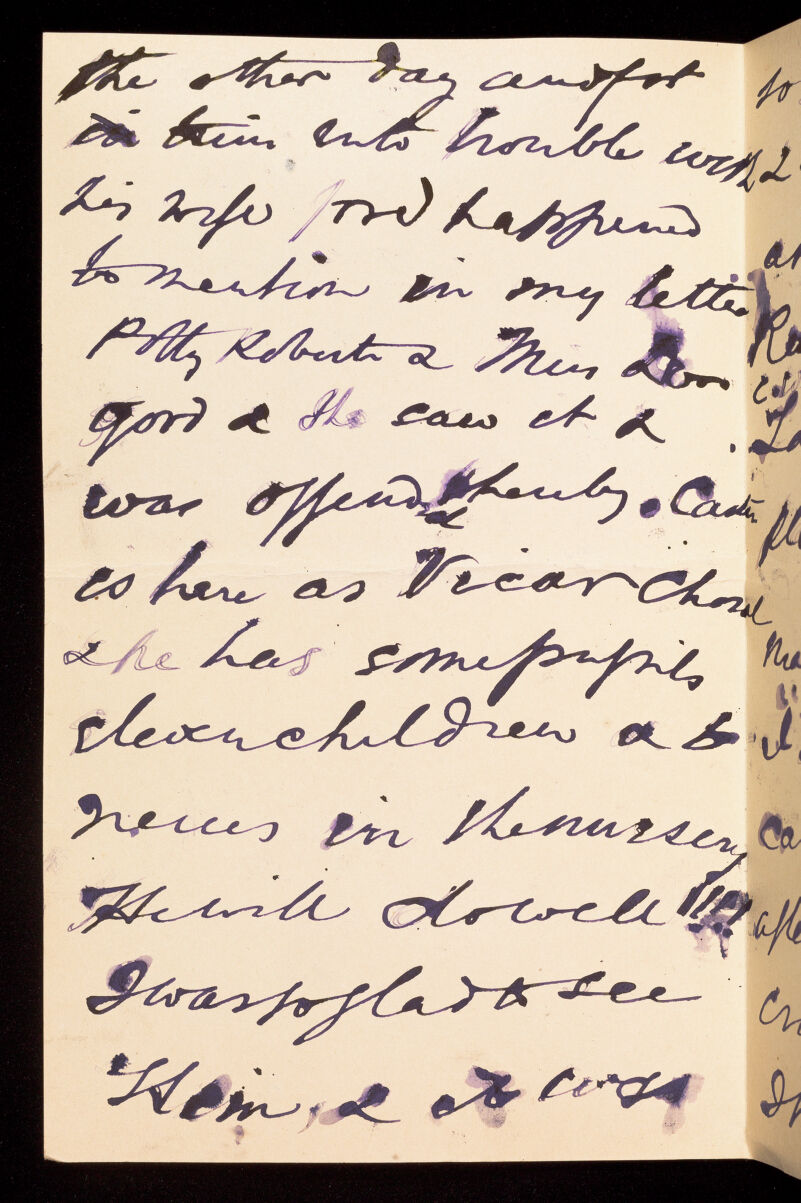 the other day and got
him into trouble with
his wife for I happened
to mention in my letter
Potty Roberts & Miss
good & she saw it &
was offended thereby. Carter
is here as Vicar Choral
& he has some pupils
eleven children & 
nieces in the nursery
He will do well !!!
I was so glad to see
Him, & it was